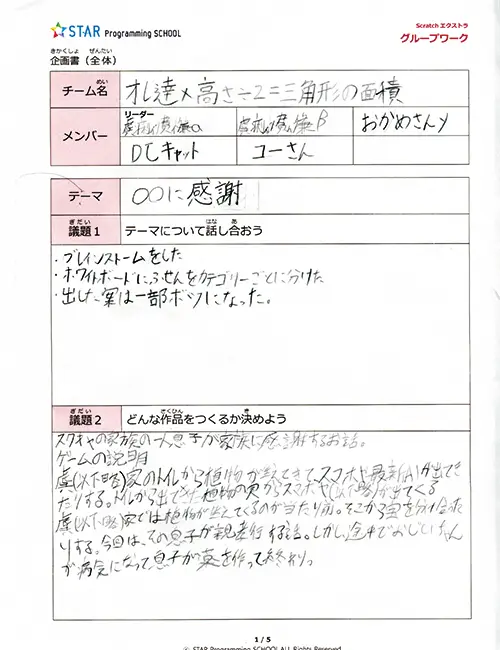 STAR Programming SCHOOL
Scratch エクストラ
グループワーク
きかくしょ ぜんたい
企画書（全体）
チーム名 オレ達×高さ÷2=三角形の面積
めい
メンバー
リーダー
α β おかめさんγ
DCキャット コーさん
テーマ 〇〇に感謝
ぎだい はな あ
議題1 テーマについて話し合おう
・ブレインストームをした
・ホワイトボードにふせんをカテゴリーごとに分けた
・出した案は一部ボツになった。
ぎだい さくひん き
議題2 どんな作品をつくるか決めよう
の家族の一人息子が家族に感謝するお話。
ゲームの説明
(以下略)家のトイレから植物が生えてきて、スマホや最新 が出てき
たりする。トイレから出てきた植物の実からスマホや(以下略)が出てくる
(以下略)家では植物が生えてくるのが当たり前。そこから実を分け合った
りする。今回は、その息子が親孝行する話。しかし、途中でおじいちゃん
が病気になって息子が薬を作って終わり。
1 / 5
© STAR Programming SCHOOL ALL Rights Reserved